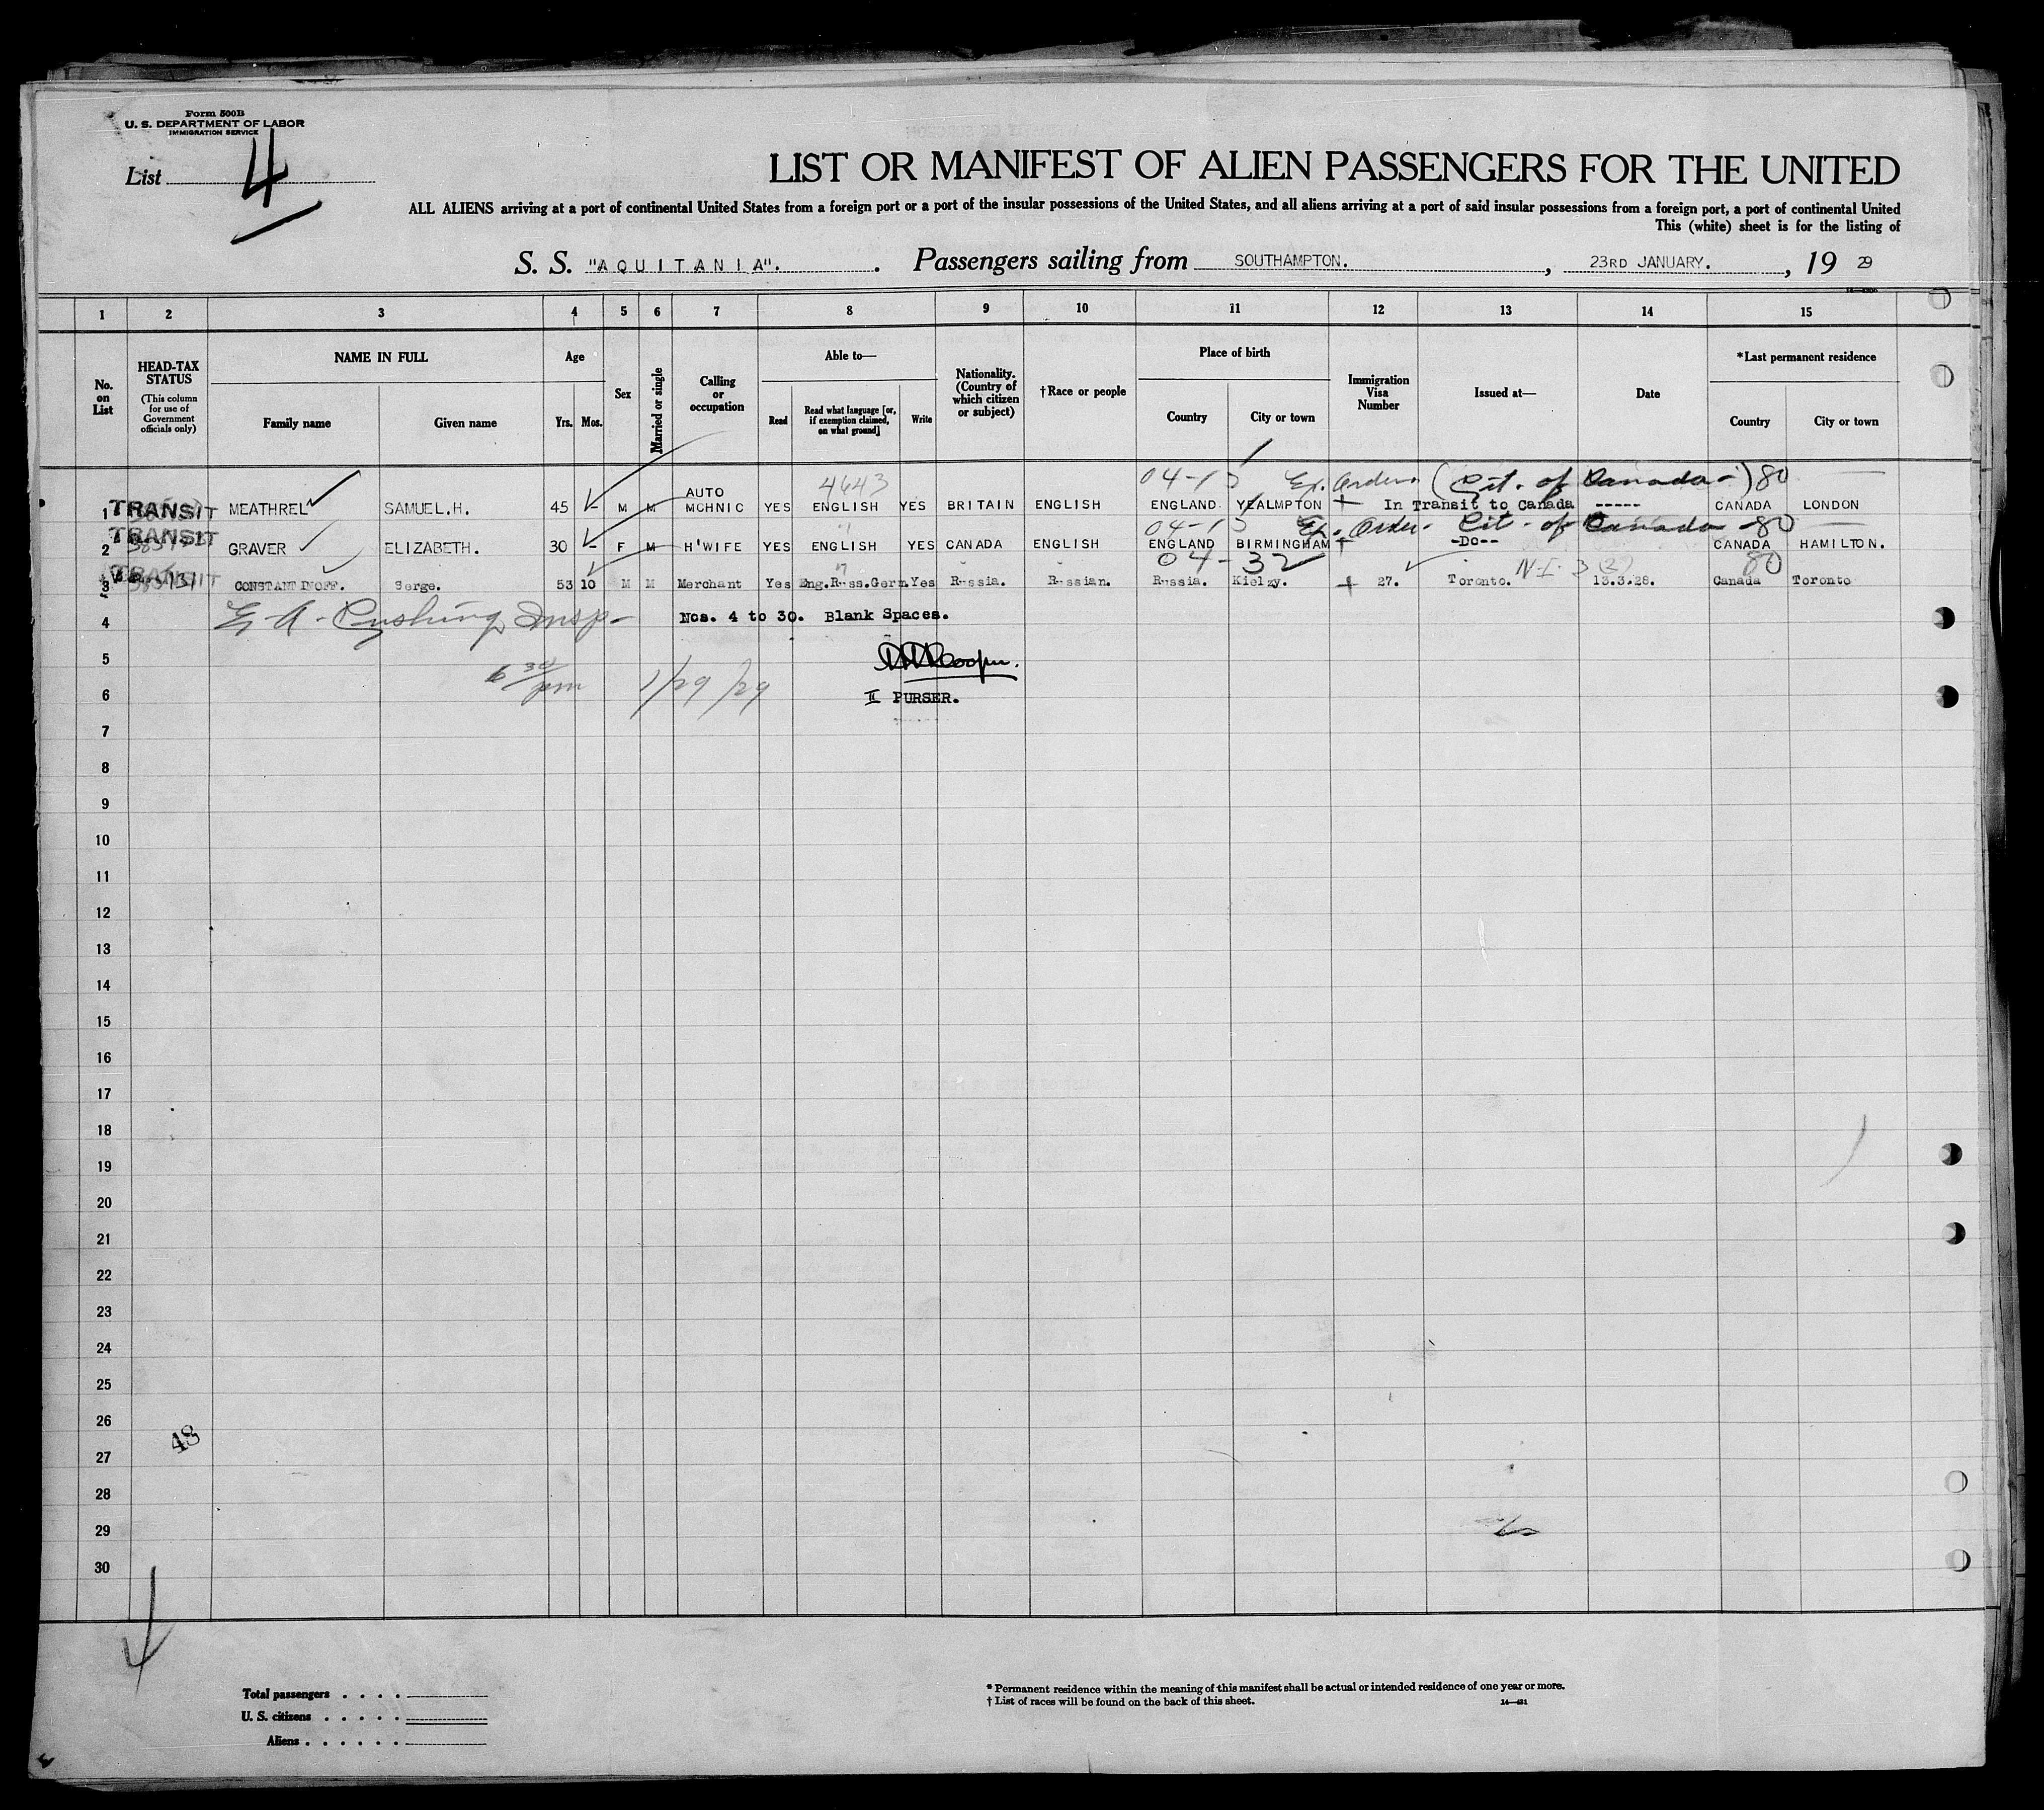 Form 500B
U. S. DEPARTMENT OF LABOR
IMMIGRATION SERVICE
List 4
LIST OR MANIFEST OF ALIEN PASSENGERS FOR THE UNITED
ALL ALIENS arriving at a port of continental United States from a foreign port or a port of the insular possessions of the United States, and all aliens arriving at a port of said insular possessions from a foreign port, a port of continental United
This (white) sheet is for the listing of
S. S. "AQUITANIA". Passengers sailing from SOUTHAMPTON. , 23RD JANUARY. , 19 29
1 2 3 4 5 6 7 8 9 10 11 12 13 14 15
No. on List
HEAD-TAX STATUS
(This column for use of Government officials only)
NAME IN FULL
Family name Given name
Age
Yrs. Mos.
Sex
Married or single
Calling or occupation
Able to—
Read Read what language [or, if exemption claimed, on what ground] Write
Nationality. (Country of which citizen or subject)
†Race or people
Place of birth
Country City or town
Immigration Visa Number
Issued at—
Date
*Last permanent residence
Country City or town
4643 04-1 Ex. Orders (Cit. of Canada-) 80
1 TRANSIT MEATHREL SAMUEL.H. 45 - M M AUTO MCHNIC YES ENGLISH YES BRITAIN ENGLISH ENGLAND YEALMPTON In Transit to Canada ----- CANADA LONDON
04-1 Ex. Order- Cit. of Canada -80
2 TRANSIT GRAVER ELIZABETH. 30 - F M H'WIFE YES ENGLISH YES CANADA ENGLISH ENGLAND BIRMINGHAM -DO-- CANADA HAMILTON.
04-32 80
3 TRANSIT CONSTANTINOFF. Serge. 53 10 M M Merchant Yes Eng.Russ.Germ. Yes Russia. Russian. Russia. Kielzy. 27. Toronto. 13.3.28. Canada Toronto
4 E. A. Cushing Insp- Nos. 4 to 30. Blank Spaces.
5 6 30 pm 1/29/29 Cooper.
6 II PURSER.
7
8
9
10
11
12
13
14
15
16
17
18
19
20
21
22
23
24
25
26
48
27
28
29
30
Total passengers . . . .
U. S. citizens . . . . .
Aliens . . . . . .
* Permanent residence within the meaning of this manifest shall be actual or intended residence of one year or more.
† List of races will be found on the back of this sheet.
14—421